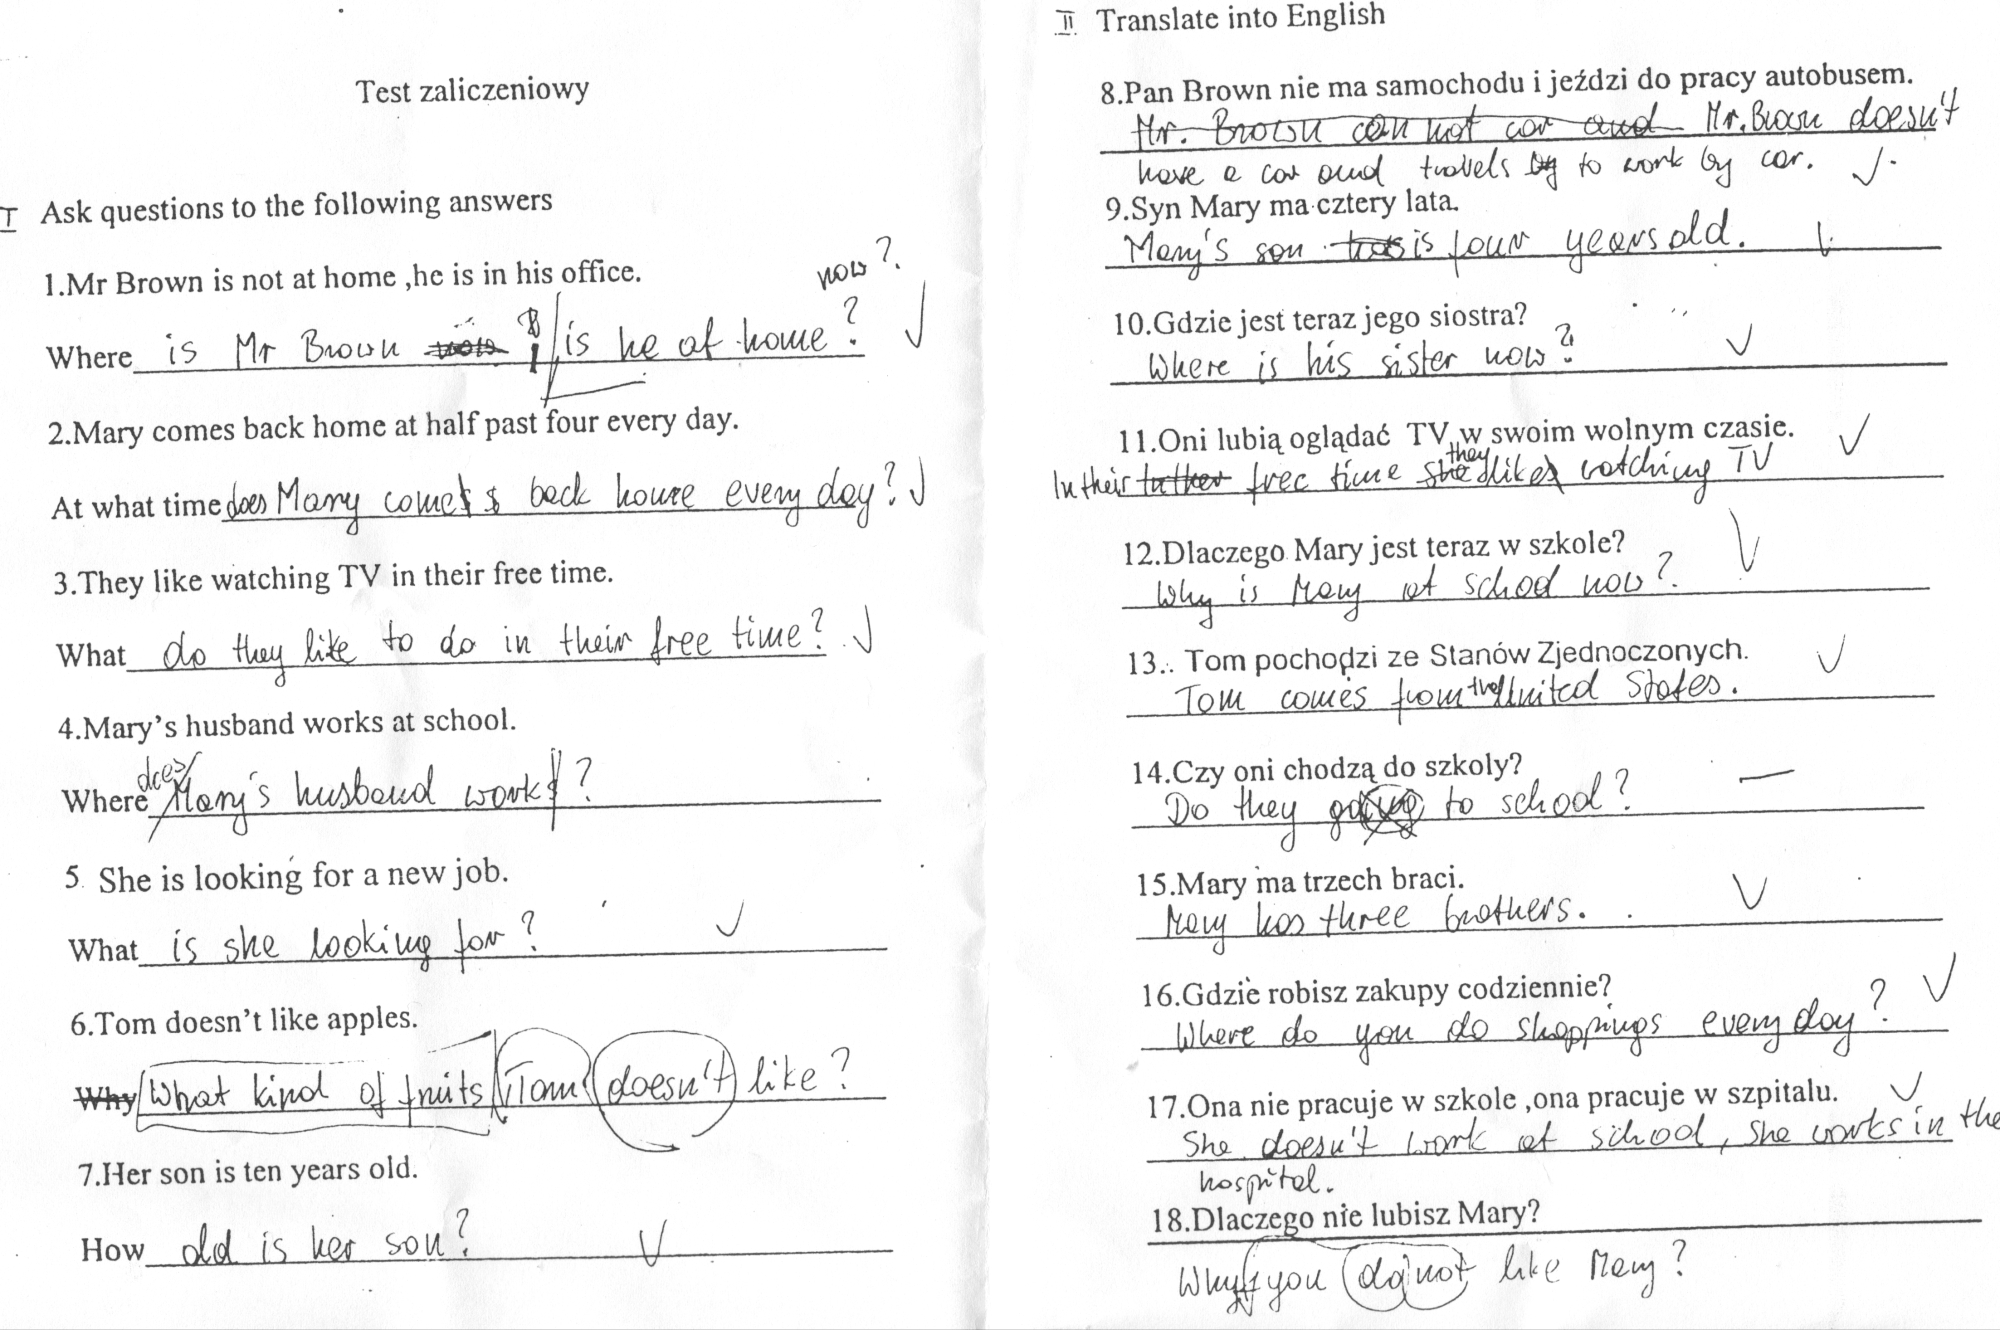 Test zaliczeniowy
I Ask questions to the following answers
1.Mr Brown is not at home ,he is in his office.
now?
Where is Mr Brown now ? is he at home?
2.Mary comes back home at half past four every day.
At what time does Mary comes back home every day?
3.They like watching TV in their free time.
What do they like to do in their free time?
4.Mary's husband works at school.
does
Where Mary's husband works?
5. She is looking for a new job.
What is she looking for?
6.Tom doesn't like apples.
Why What kind of fruits Tom doesn't like?
7.Her son is ten years old.
How old is her son?
II Translate into English
8.Pan Brown nie ma samochodu i jeździ do pracy autobusem.
Mr. Brown can not car and Mr. Brown doesn't
have a car and travels by to work by car.
9.Syn Mary ma cztery lata.
Mary's son has is four years old.
10.Gdzie jest teraz jego siostra?
Where is his sister now?
11.Oni lubią oglądać TV w swoim wolnym czasie.
they
In their free time she likes watching TV
12.Dlaczego Mary jest teraz w szkole?
Why is Mary at school now?
13.. Tom pochodzi ze Stanów Zjednoczonych.
Tom comes from the United States.
14.Czy oni chodzą do szkoly?
Do they going to school?
15.Mary ma trzech braci.
Mary has three brothers.
16.Gdzie robisz zakupy codziennie?
Where do you do shoppings every day?
17.Ona nie pracuje w szkole ,ona pracuje w szpitalu.
She doesn't work at school, she works in the
hospital.
18.Dlaczego nie lubisz Mary?
Why you do not like Mary?